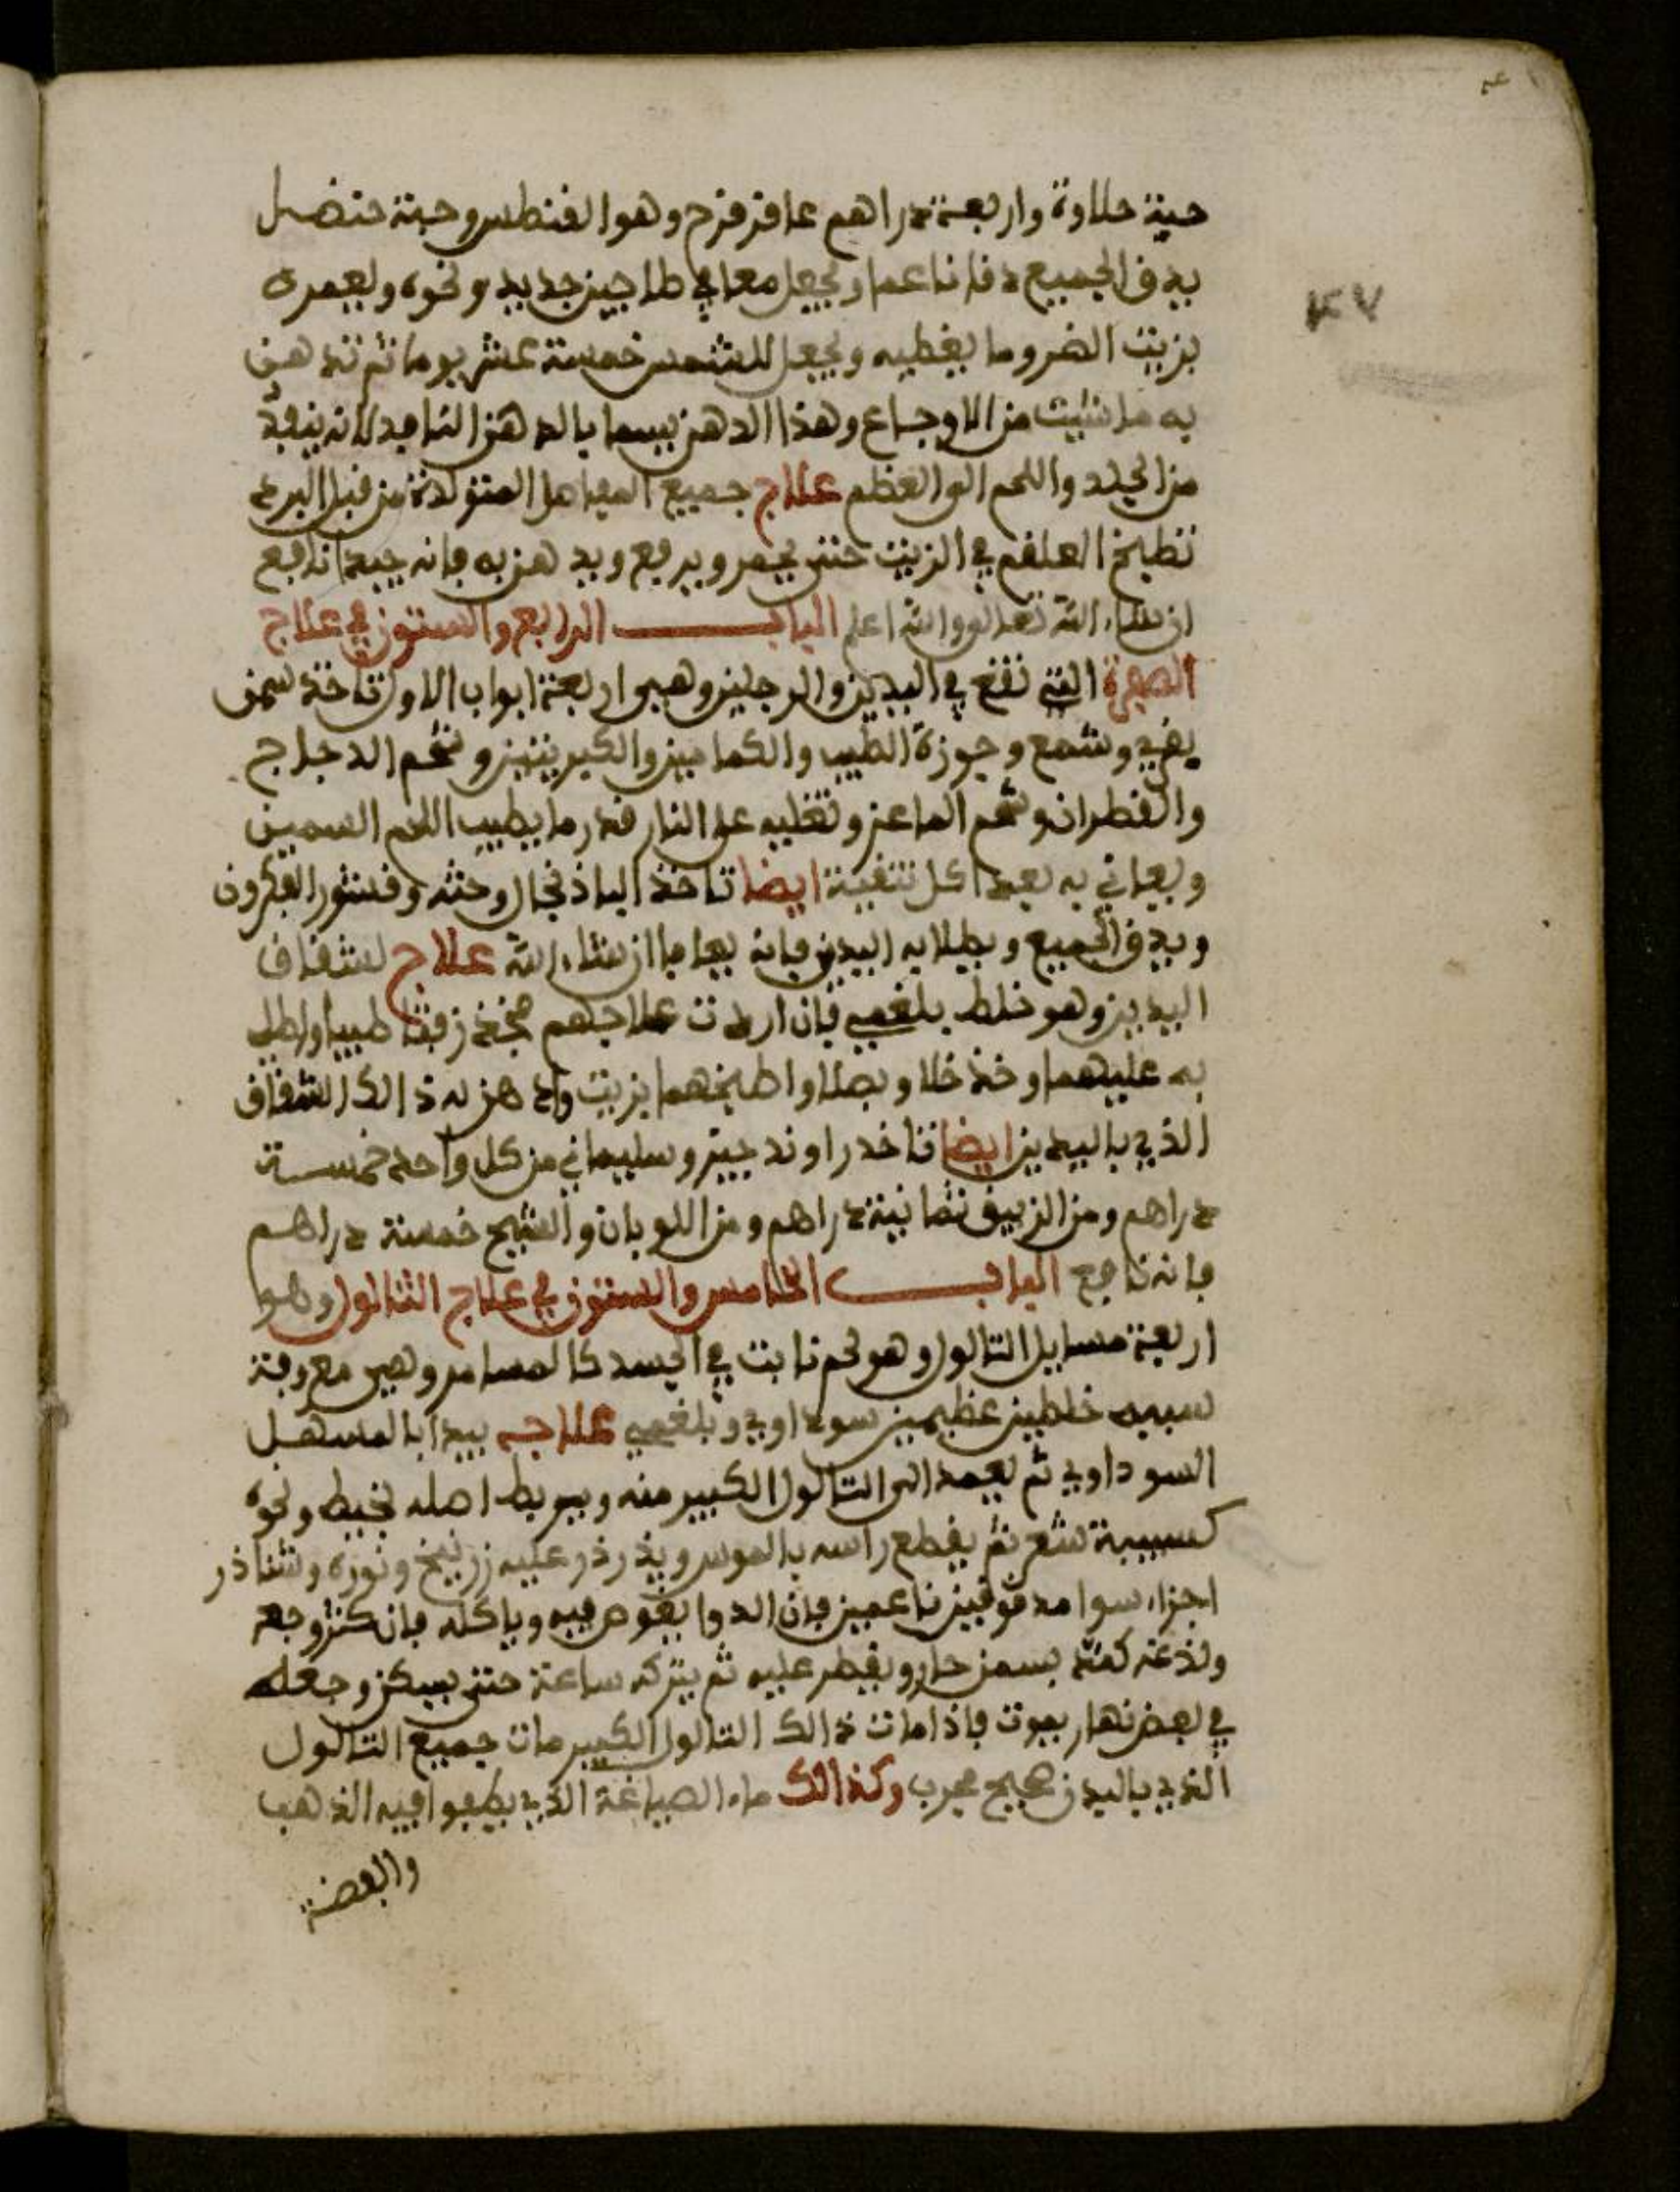 حبة حلاوة واربعة دراهم عاقر قرح وهو القنطس وحبة حنضل
يدق الجميع دقا ناعما ويجعل معا في طاجين جديد ونحوه ويعمره
بزيت القروما يغطيه ويجعل للشمس خمسة عشر يوما ثم تدهن
به ما شيت من الاوجاع وهذا الدهن يسما بالدهن النافد لانه ينفد
من الجلد واللحم الى العظم علاج جميع المفاصل المتولدة من قبل البرد
تطبخ العلقم في الزيت حتى يحمر ويرفع ويدهن به فانه جيد نافع
ان شاء الله تعالى والله اعلم الباب الرابع والستون في علاج
الصفرة التي تقع في اليدين والرجلين وهي اربعة ابواب الاول تاخذ سمن
بقري وشمع وجوزة الطيب والكمامين والكبريتين وشحم الدجاج
والقطران وشحم الماعز وتغليه على النار قدر ما يطيب اللحم السمين
ويعاني به بعد اكل تنقية ايضا تاخذ الباذنجال وحثه وقشور الفكرون
ويدق الجميع ويطلا به اليدين فانه يعافا ان شاء الله علاج لشقاق
اليدين وهو خلط بلغمي فان اردت علاجهم فخذ زفتا طيبا واطلي
به عليهما وخذ خلا وبصلا واطبخهما بزيت وادهن به ذالك الشقاق
الذي باليدين ايضا تاخد راوند جيز وسليماني من كل واحد خمسة
دراهم ومن الزيبق ثمانية دراهم ومن اللوبان والشيح خمسة دراهم
فانه ناجع الباب الخامس والستون في علاج الثالول وهو
اربعة مسايل التالول وهو لحم نابت في الجسد كالمسامر وهي معروفة
سببه خلطين عظيمين سوداوي وبلغمي علاجه يبدا بالمسهل
السوداوي ثم يعمد الى التالول الكبير منه ويربط اصله بخيط ونحوه
كسبيبة شعر ثم يقطع راسه بالموس ويذرذر عليه زرنيخ ونورة وشناذر
اجزاء سوا مدقوقين ناعمين فان الدوا يغوص فيه وياكله فان كثر وجعه
ولذعه كمد بسمن حار ويقطر عليه ثم يتركه ساعة حتى يسكن وجعله
في بعض نهار يموت فاذا مات ذالك التالول الكبير مات جميع التالول
الذي باليدن صحيح مجرب وكذالك ماء الصياغة الذي يطفوا فيه الذهب
والفضة